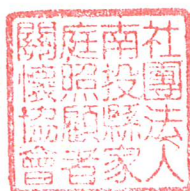 社團法人
南投縣家
庭照顧者
關懷協會